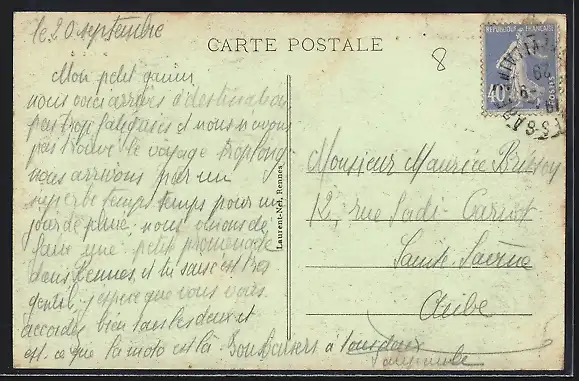 le 20 septembre
CARTE POSTALE
8
REPUBLIQUE FRANÇAISE
40c
POSTES
Mon petit
nous voici arrivés à destination
pas trop fatiguées et nous n'avons
pas trouvé le voyage trop long
nous arrivons par un
superbe temps temps pour un
jour de pluie; nous venons de
faire une petit promenade
dans Rennes, et la sauce est très
gentil, j'espère que vous vous
accordez bien tous les deux et
est-ce que la moto est là. Bon Baisers à tous deux
Laurent-Nel, Rennes
Monsieur Maurice
12, rue Sadi-Carnot
Sainte-Savine
Aube